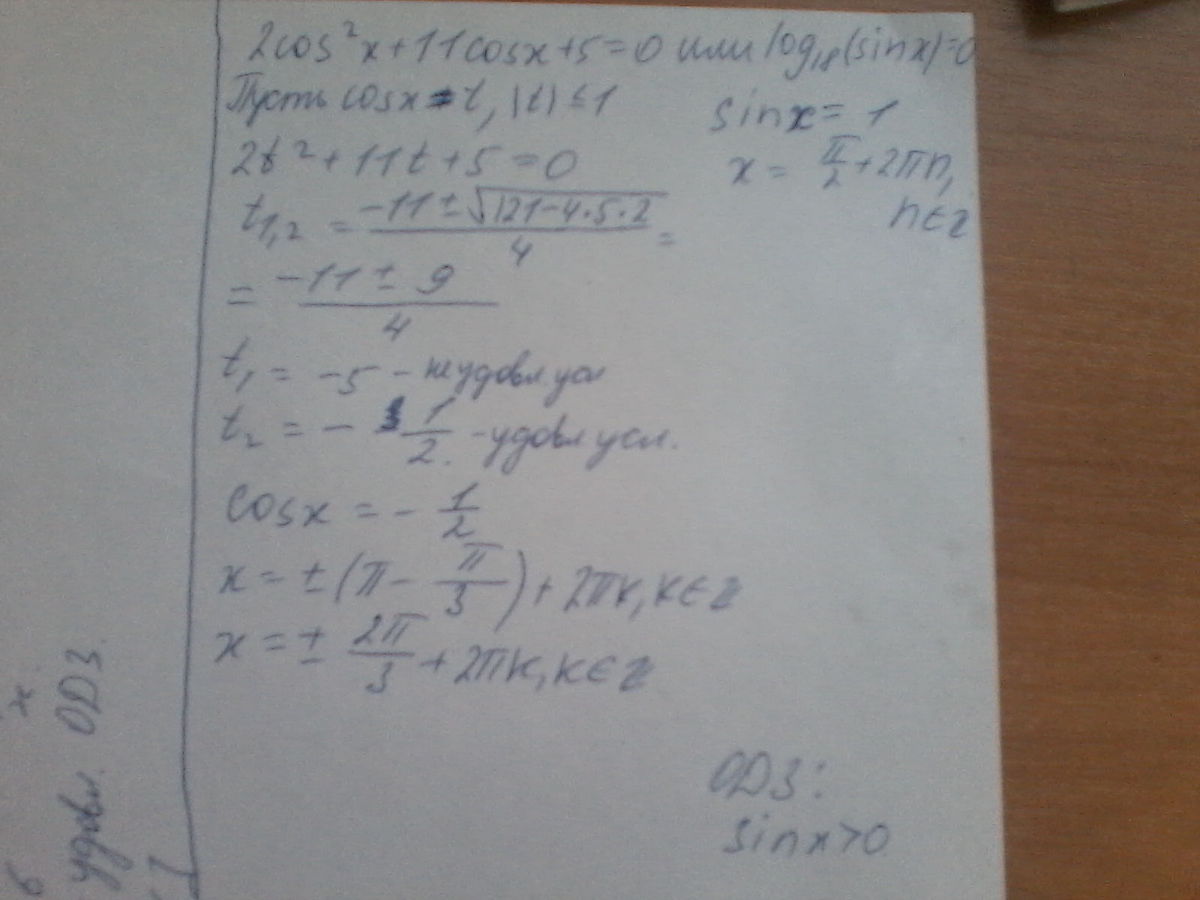 2cos²x+11cosx+5=0 или log₁₈(sinx)=0
Пусть cosx=t, |t|≤1
sinx=1
2t²+11t+5=0
x=π/2+2πn,
n∈z
t₁,₂=(-11±√(121-4·5·2))/4=
=(-11±9)/4
t₁=-5-не удовл усл
t₂=-1/2-удовл усл.
cosx=-1/2
x=±(π-π/3)+2πk,k∈z
x=±2π/3+2πk,k∈z
ОДЗ:
sinx>0
x
удовл. ОДЗ.